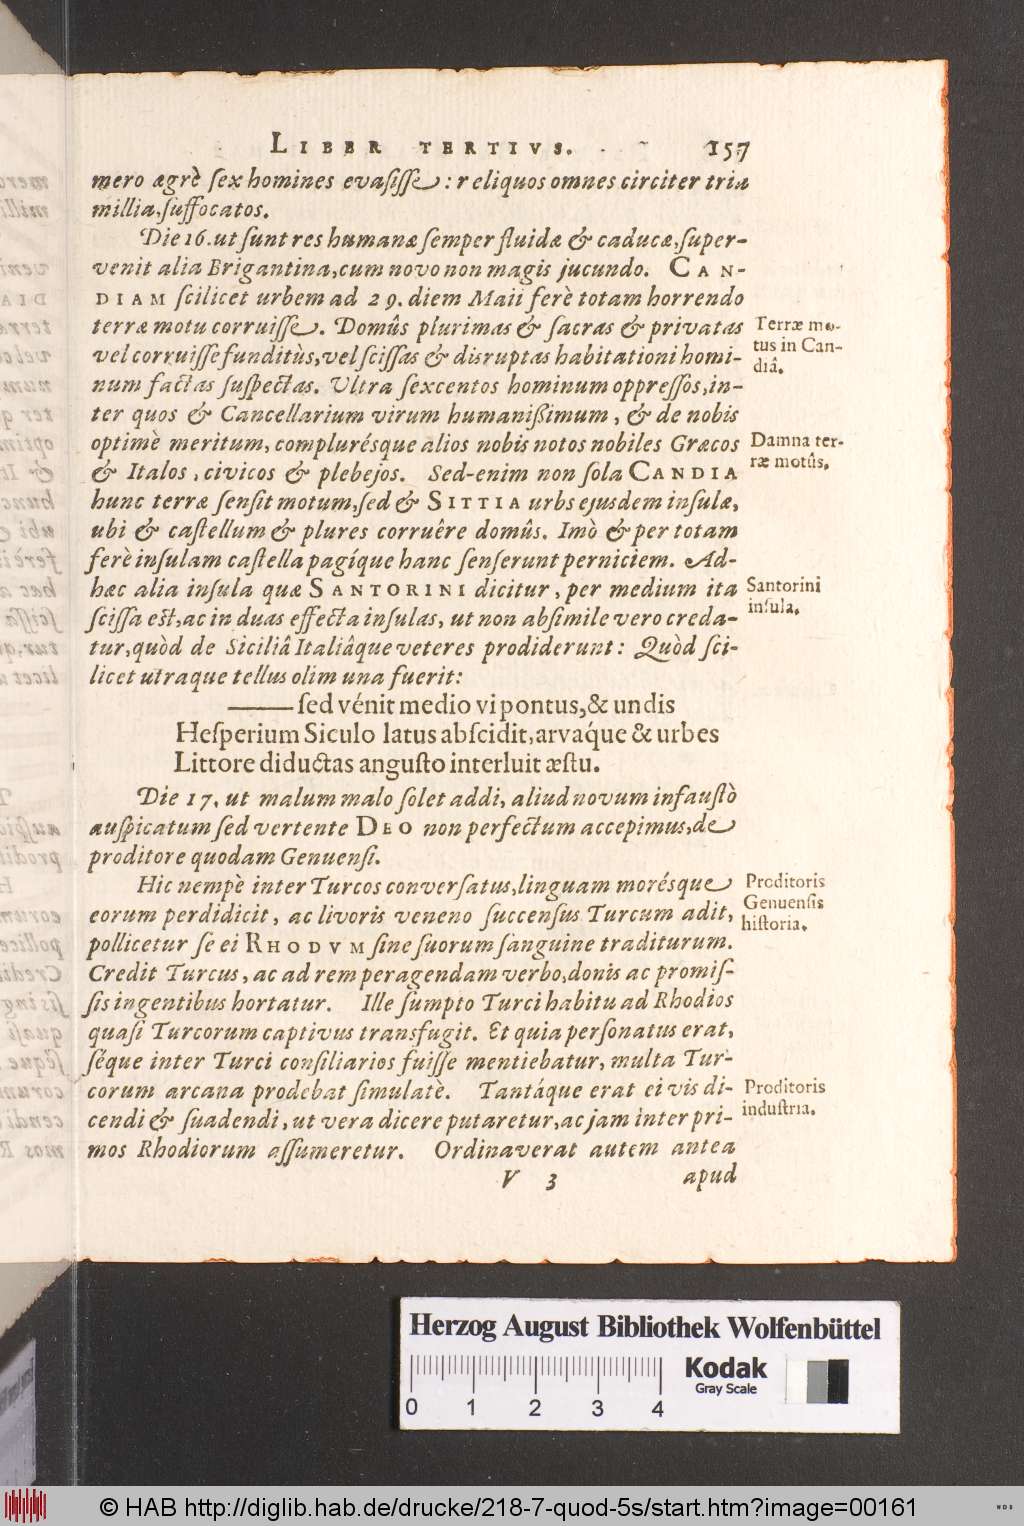 LIBER TERTIVS. 157
mero ægrè ſex homines evaſiſſe: reliquos omnes circiter tria
millia, ſuffocatos.
Die 16. ut ſunt res humanæ ſemper fluidæ & caducæ, ſuper-
venit alia Brigantina, cum novo non magis jucundo. CAN-
DIAM ſcilicet urbem ad 29. diem Maii ferè totam horrendo
terræ motu corruiſſe. Domûs plurimas & ſacras & privatas
Terræ mo-
vel corruiſſe funditùs, vel ſciſſas & disruptas habitationi homi-
tus in Can-
diâ.
num factas ſuſpectas. Ultra ſexcentos hominum oppreſſos, in-
ter quos & Cancellarium virum humanißimum, & de nobis
optimè meritum, complurésque alios nobis notos nobiles Græcos
Damna ter-
& Italos, civicos & plebejos. Sed-enim non ſola CANDIA
ræ motûs.
hunc terræ ſenſit motum, ſed & SITTIA urbs ejusdem inſulæ,
ubi & caſtellum & plures corruêre domûs. Imò & per totam
ferè inſulam caſtella pagíque hanc ſenſerunt perniciem. Ad-
hæc alia inſula quæ SANTORINI dicitur, per medium ita
Santorini
ſciſſa eſt, ac in duas effecta inſulas, ut non abſimile vero creda-
inſula.
tur, quòd de Siciliâ Italiâque veteres prodiderunt: Quòd ſci-
licet utraque tellus olim una fuerit:
—— ſed vénit medio vi pontus, & undis
Heſperium Siculo latus abſcidit, arváque & urbes
Littore diductas anguſto interluit æſtu.
Die 17. ut malum malo ſolet addi, aliud novum infauſtò
auſpicatum ſed vertente DEO non perfectum accepimus, de
proditore quodam Genuenſi.
Hic nempè inter Turcos converſatus, linguam morésque
Proditoris
Genuenſis
eorum perdidicit, ac livoris veneno ſuccenſus Turcum adit,
hiſtoria.
pollicetur ſe ei RHODVM ſine ſuorum ſanguine traditurum.
Credit Turcus, ac ad rem peragendam verbo, donis ac promiſ-
ſis ingentibus hortatur. Ille ſumpto Turci habitu ad Rhodios
quaſi Turcorum captivus transfugit. Et quia perſonatus erat,
ſéque inter Turci conſiliarios fuiſſe mentiebatur, multa Tur-
corum arcana prodebat ſimulatè. Tantáque erat ei vis di-
Proditoris
cendi & ſuadendi, ut vera dicere putaretur, ac jam inter pri-
induſtria.
mos Rhodiorum aſſumeretur. Ordinaverat autem antea
V 3 apud
Herzog August Bibliothek Wolfenbüttel
Kodak
Gray Scale
0 1 2 3 4
© HAB http://diglib.hab.de/drucke/218-7-quod-5s/start.htm?image=00161